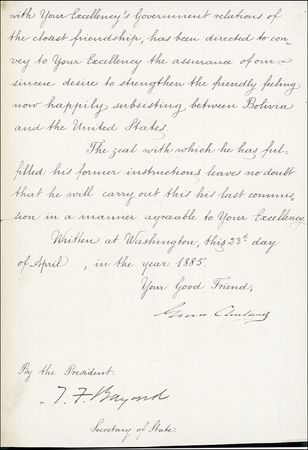 with Your Excellency's Government relations of
the closest friendship, has been directed to con-
vey to Your Excellency the assurance of our
sincere desire to strengthen the friendly feeling
now happily subsisting between Bolivia
and the United States.
The zeal with which he has ful-
filled his former instructions leaves no doubt
that he will carry out this his last commis-
sion in a manner agreeable to Your Excellency.
Written at Washington, this 23d day
of April , in the year 1885.
Your Good Friend,
Grover Cleveland
By the President:
T. F. Bayard
Secretary of State.